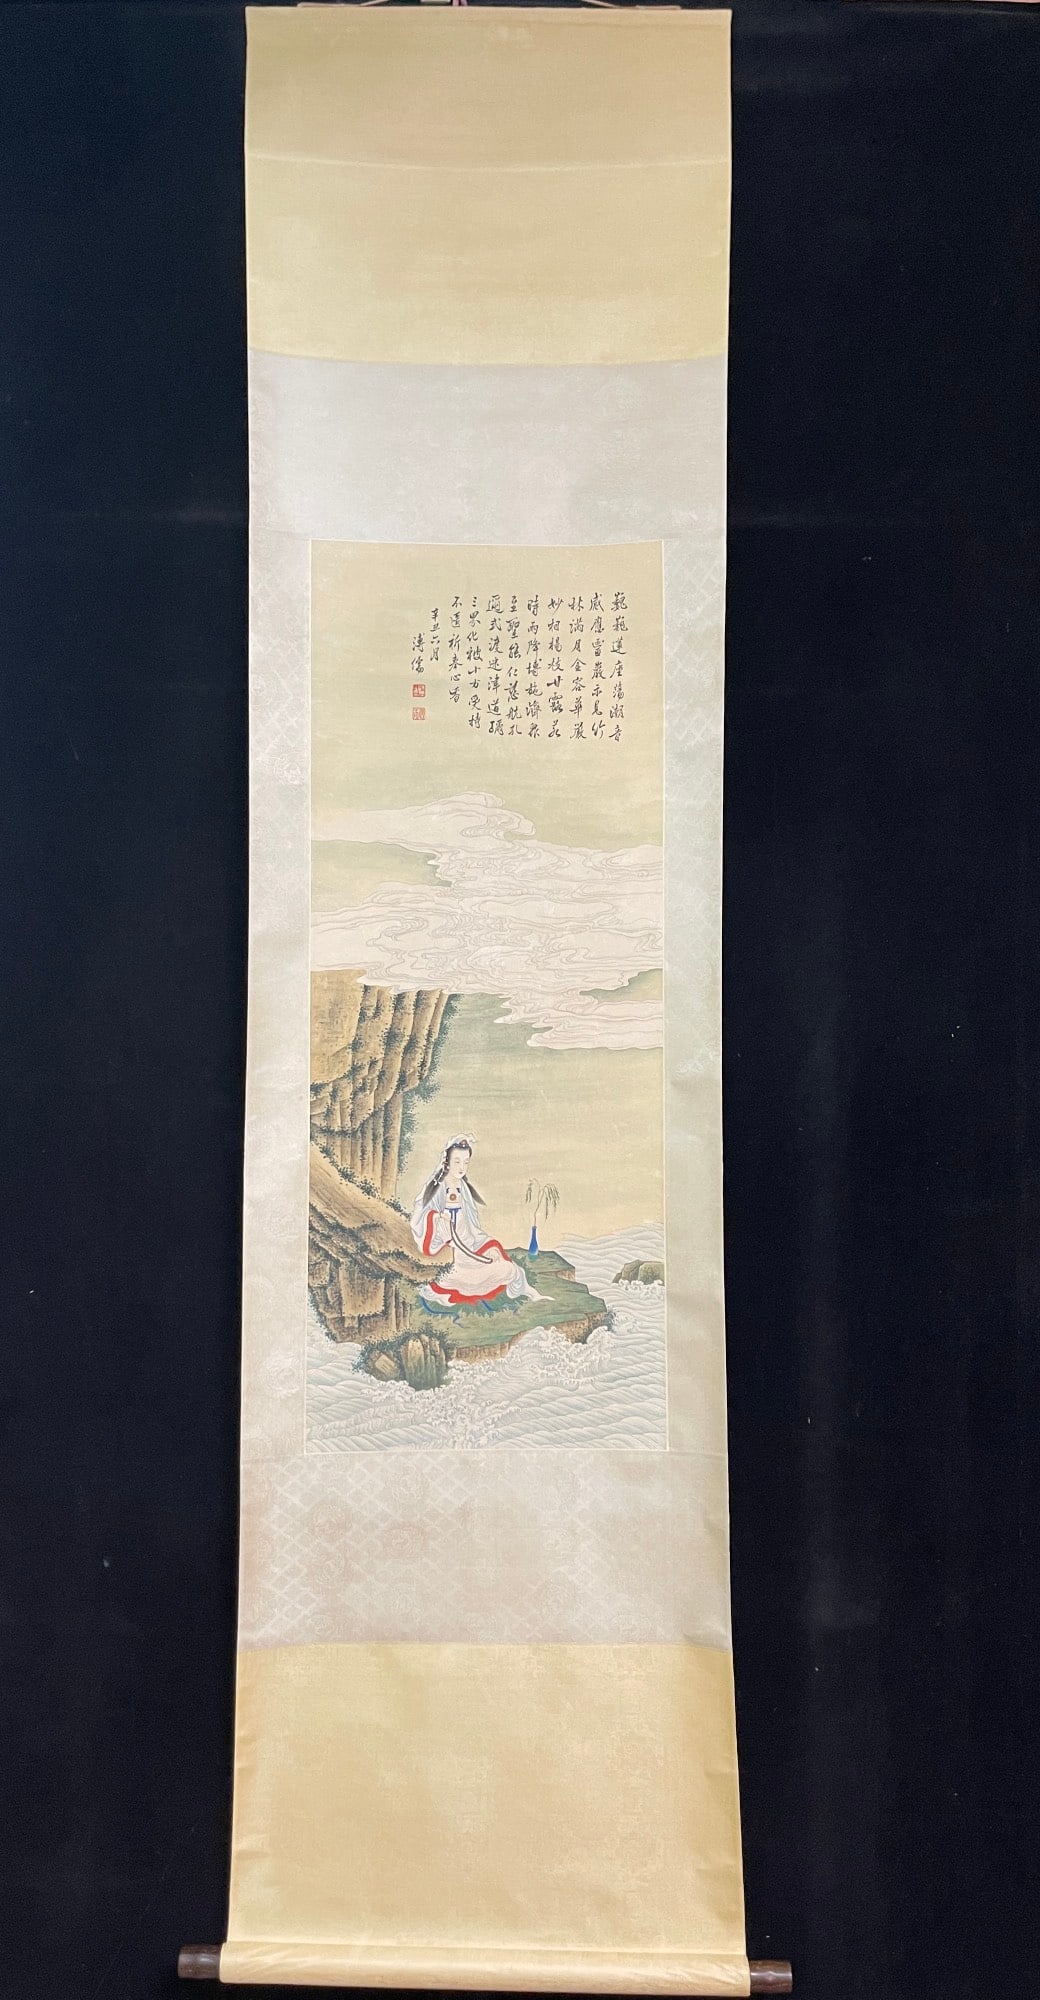 巍巍蓮座蕩潮音
感應雷巖示見竹
林滿月金容華嚴
妙相楊枝甘露若
時雨降博施濟眾
至聖能仁慈航孔
邇式渡迷津道彌
三界化被十方受持
不遺祈奉心香
辛丑六月
溥儒